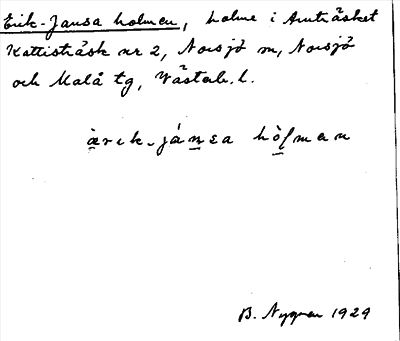 Erik-Jansa holmen, holme i Amträsket
Kattisträsk nr 2, Norsjö sn, Norsjö
och Malå tg, Västerb. l.
ærik-jánsa hòlman
B. Nygren 1929